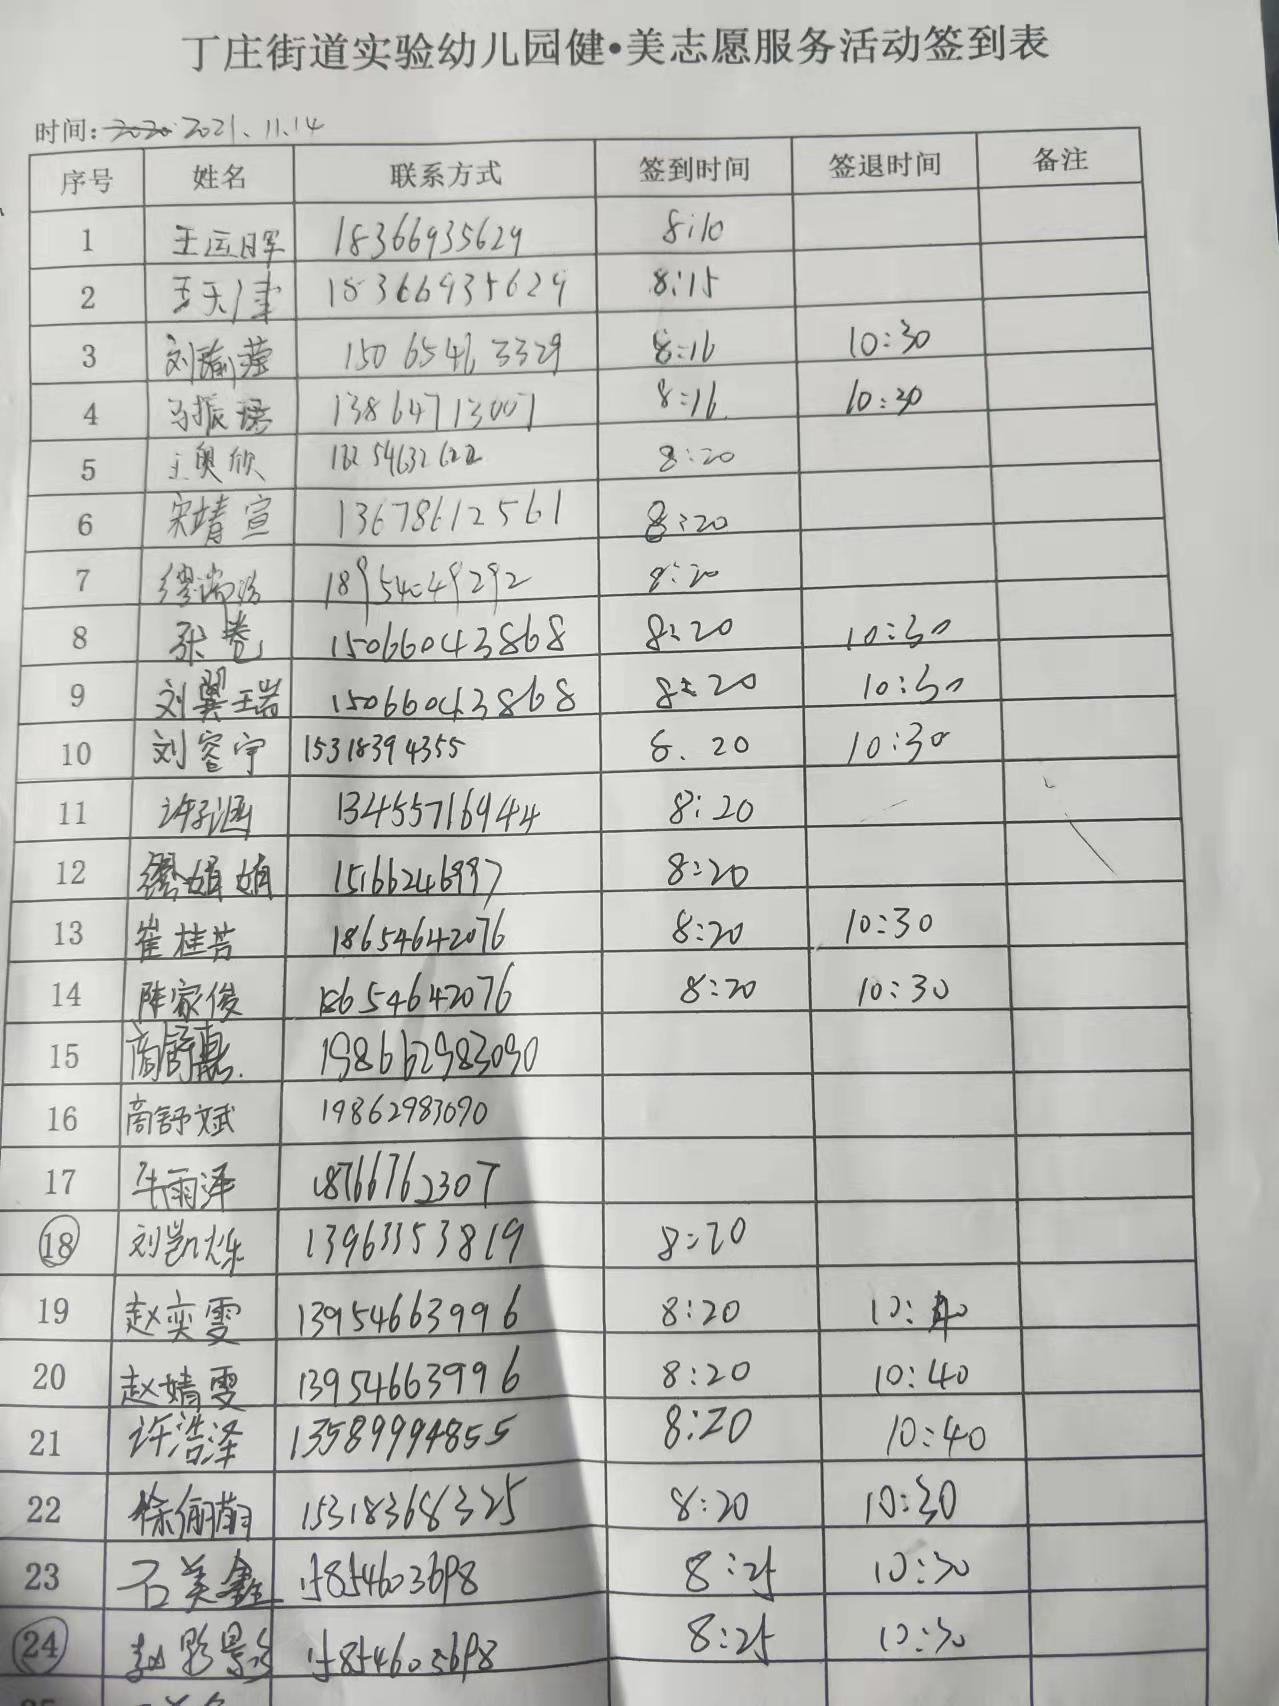 丁庄街道实验幼儿园健•美志愿服务活动签到表
时间：2020 2021.11.14
序号 姓名 联系方式 签到时间 签退时间 备注
1 王运晖 18366935629 8:10
2 王天 18366935629 8:15
3 刘瑜莹 15065463329 8:16 10:30
4 马振 13864713007 8:16 10:30
5 王奥欣 8:20
6 宋靖宣 13678612561 8:20
7 缪 18954049292 8:20
8 张卷 15066043868 8:20 10:30
9 刘翼瑞 15066043868 8:20 10:30
10 刘容宇 15318394355 8.20 10:30
11 许涵 13455716944 8:20
12 缪娟娟 15166246997 8:20
13 崔桂芳 18654642076 8:20 10:30
14 陈家俊 18654642076 8:20 10:30
15 商舒惠 198662983090
16 商舒斌 19862983090
17 牛雨泽 18766762307
18 刘凯烁 13963353819 8:20
19 赵奕雯 13954663996 8:20 10:40
20 赵婧雯 13954663996 8:20 10:40
21 许浩泽 13589994855 8:20 10:40
22 徐俪萌 15318368325 8:20 10:30
23 石美鑫 15854603698 8:25 10:30
24 赵 15854603698 8:25 10:30
25